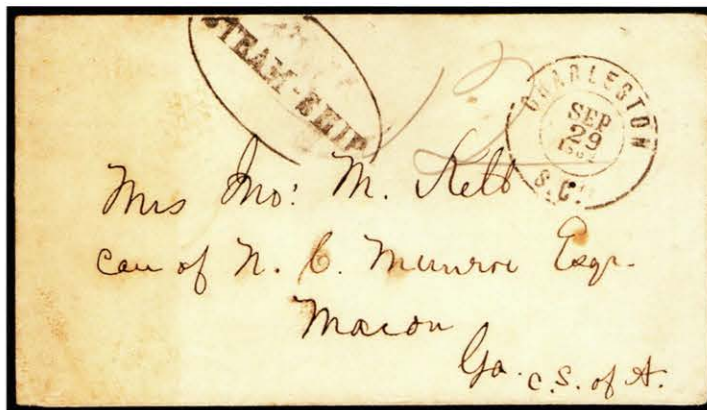 STEAM-SHIP
12
CHARLESTON
SEP
29
1862
S.C.
Mrs Jno: M. Kell
care of N. C. Munroe Esqr.
Macon
Ga. C.S. of A.